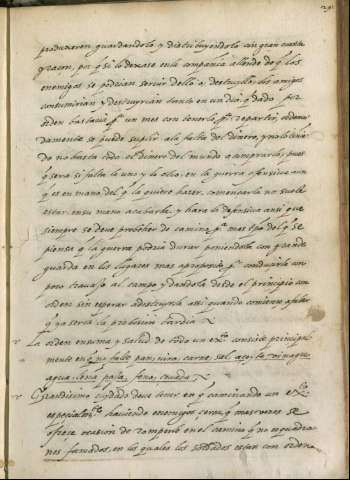 29
produxeren guardandolo, y distribuyendolo con gran cuenta
y razon, por q̃ si lo dexase en la campaña allende de q̃ los
enemigos se podrian servir dello o destruyllo, los amigos
consumirian y destruyrian tanto en un dia q̃ dado por
orden bastaria pª un mes con tenerlo, pª repartir, ordena
damente se puede suplir a la falta del dinero, y no lo tenien
do no basta todo el dinero del mundo a comprarlo, pues
q̃ sera si falta lo uno y lo otro, en la guerra ofensiva aun
q̃ es en mano del q̃ la quiere hazer, començarla no suele
estar en su mano acabarla, y hara la defensiva ansi que
siempre se deve proveher de comida pª mas tpo del q̃ se
piensa q̃ la guerra podria durar poniendola con grande
guarda en los lugares mas aproposito pª conduzirla con
poco trauajo al campo y dandola desde el principio con
orden sin esperar a
assi quando comience a faltar
q̃ ya seria la provision tardia
La orden en suma y salud de todo un exº consiste principal
mente en q̃ no falte pan, vino, carne, sal, azeite vinagre
agua, leña, paja, feno, cevada
Grandisimo cuydado deve tener en q̃ caminando un exº
especialmte haviendo enemigos cerca q̃ mas vezes se
ofrece ocasion de romperlo en el camino q̃ no esquadro
nes formados, en los quales los soldados estan con orden